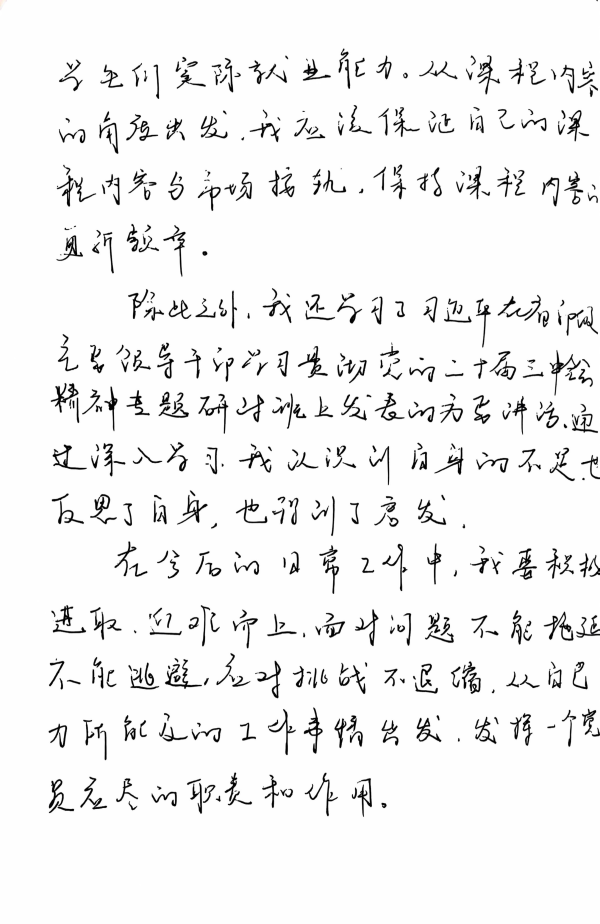 学生们实际就业能力。从课程内容
的角度出发，我应该保证自己的课
程内容与市场接轨，保持课程内容的
更新频率。
除此之外，我还学习了习近平在省部级
主要领导干部学习贯彻党的二十届三中全会
精神专题研讨班上发表的重要讲话，通
过深入学习，我认识到自身的不足，也
反思了自身，也得到了启发。
在今后的日常工作中，我要积极
进取，迎难而上，面对问题不能拖延
不能逃避，应对挑战不退缩，从自己
力所能及的工作事情出发，发挥一个党
员应尽的职责和作用。